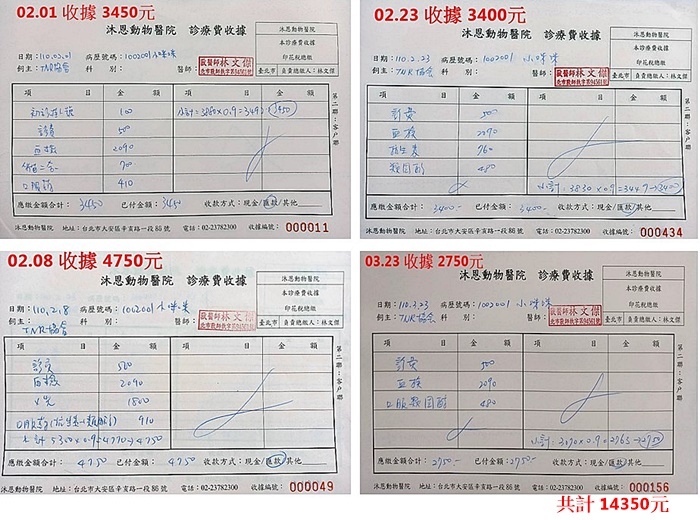 02.01 收據 3450元
沐恩動物醫院 診療費收據
沐恩動物醫院
本診療費收據
印花稅總繳
臺北市 負責總繳人:林文傑
日期:110.02.01 病歷號碼:1002001 小咪咪
飼主:TNR協會 科 別: 醫師:
獸醫師林文傑
項 目 金 額 項 目 金 額
初診掛號 100
診費 500
血檢 2090
410
3450
第二聯:客戶聯
應繳金額合計:3450 已付金額:3450 收款方式:現金/匯款/其他
沐恩動物醫院 地址:台北市大安區辛亥路一段86號 電話:02-23782300 收據編號:000011
02.23 收據 3400元
沐恩動物醫院 診療費收據
沐恩動物醫院
本診療費收據
印花稅總繳
臺北市 負責總繳人:林文傑
日期:110.2.23 病歷號碼:1002001 小咪咪
飼主:TNR協會 科 別: 醫師:
獸醫師林文傑
項 目 金 額 項 目 金 額
診費 500
血檢 2090
抗生素 760
類固醇 480
小計=3830×0.9=3447→3400
第二聯:客戶聯
應繳金額合計:3400- 已付金額:3400- 收款方式:現金/匯款/其他
沐恩動物醫院 地址:台北市大安區辛亥路一段86號 電話:02-23782300 收據編號:000434
02.08 收據 4750元
沐恩動物醫院 診療費收據
沐恩動物醫院
本診療費收據
印花稅總繳
臺北市 負責總繳人:林文傑
日期:110.2.8 病歷號碼:1002001 小咪咪
飼主:TNR協會 科 別: 醫師:
獸醫師林文傑
項 目 金 額 項 目 金 額
診費 500
血檢 2090
X光 1800
口服藥(抗生素、類固醇) 910
小計5300×0.9=4770→4750
第二聯:客戶聯
應繳金額合計:4750 已付金額:4750 收款方式:現金/匯款/其他
沐恩動物醫院 地址:台北市大安區辛亥路一段86號 電話:02-23782300 收據編號:000049
03.23 收據 2750元
沐恩動物醫院 診療費收據
沐恩動物醫院
本診療費收據
印花稅總繳
臺北市 負責總繳人:林文傑
日期:110.3.23 病歷號碼:1002001 小咪咪
飼主:TNR協會 科 別: 醫師:
獸醫師林文傑
項 目 金 額 項 目 金 額
診費 500
血檢 2090
口服類固醇 480
小計=3070×0.9=2763→2750
第二聯:客戶聯
應繳金額合計:2750- 已付金額:2750- 收款方式:現金/匯款/其他
沐恩動物醫院 地址:台北市大安區辛亥路一段86號 電話:02-23782300 收據編號:000156
共計 14350元